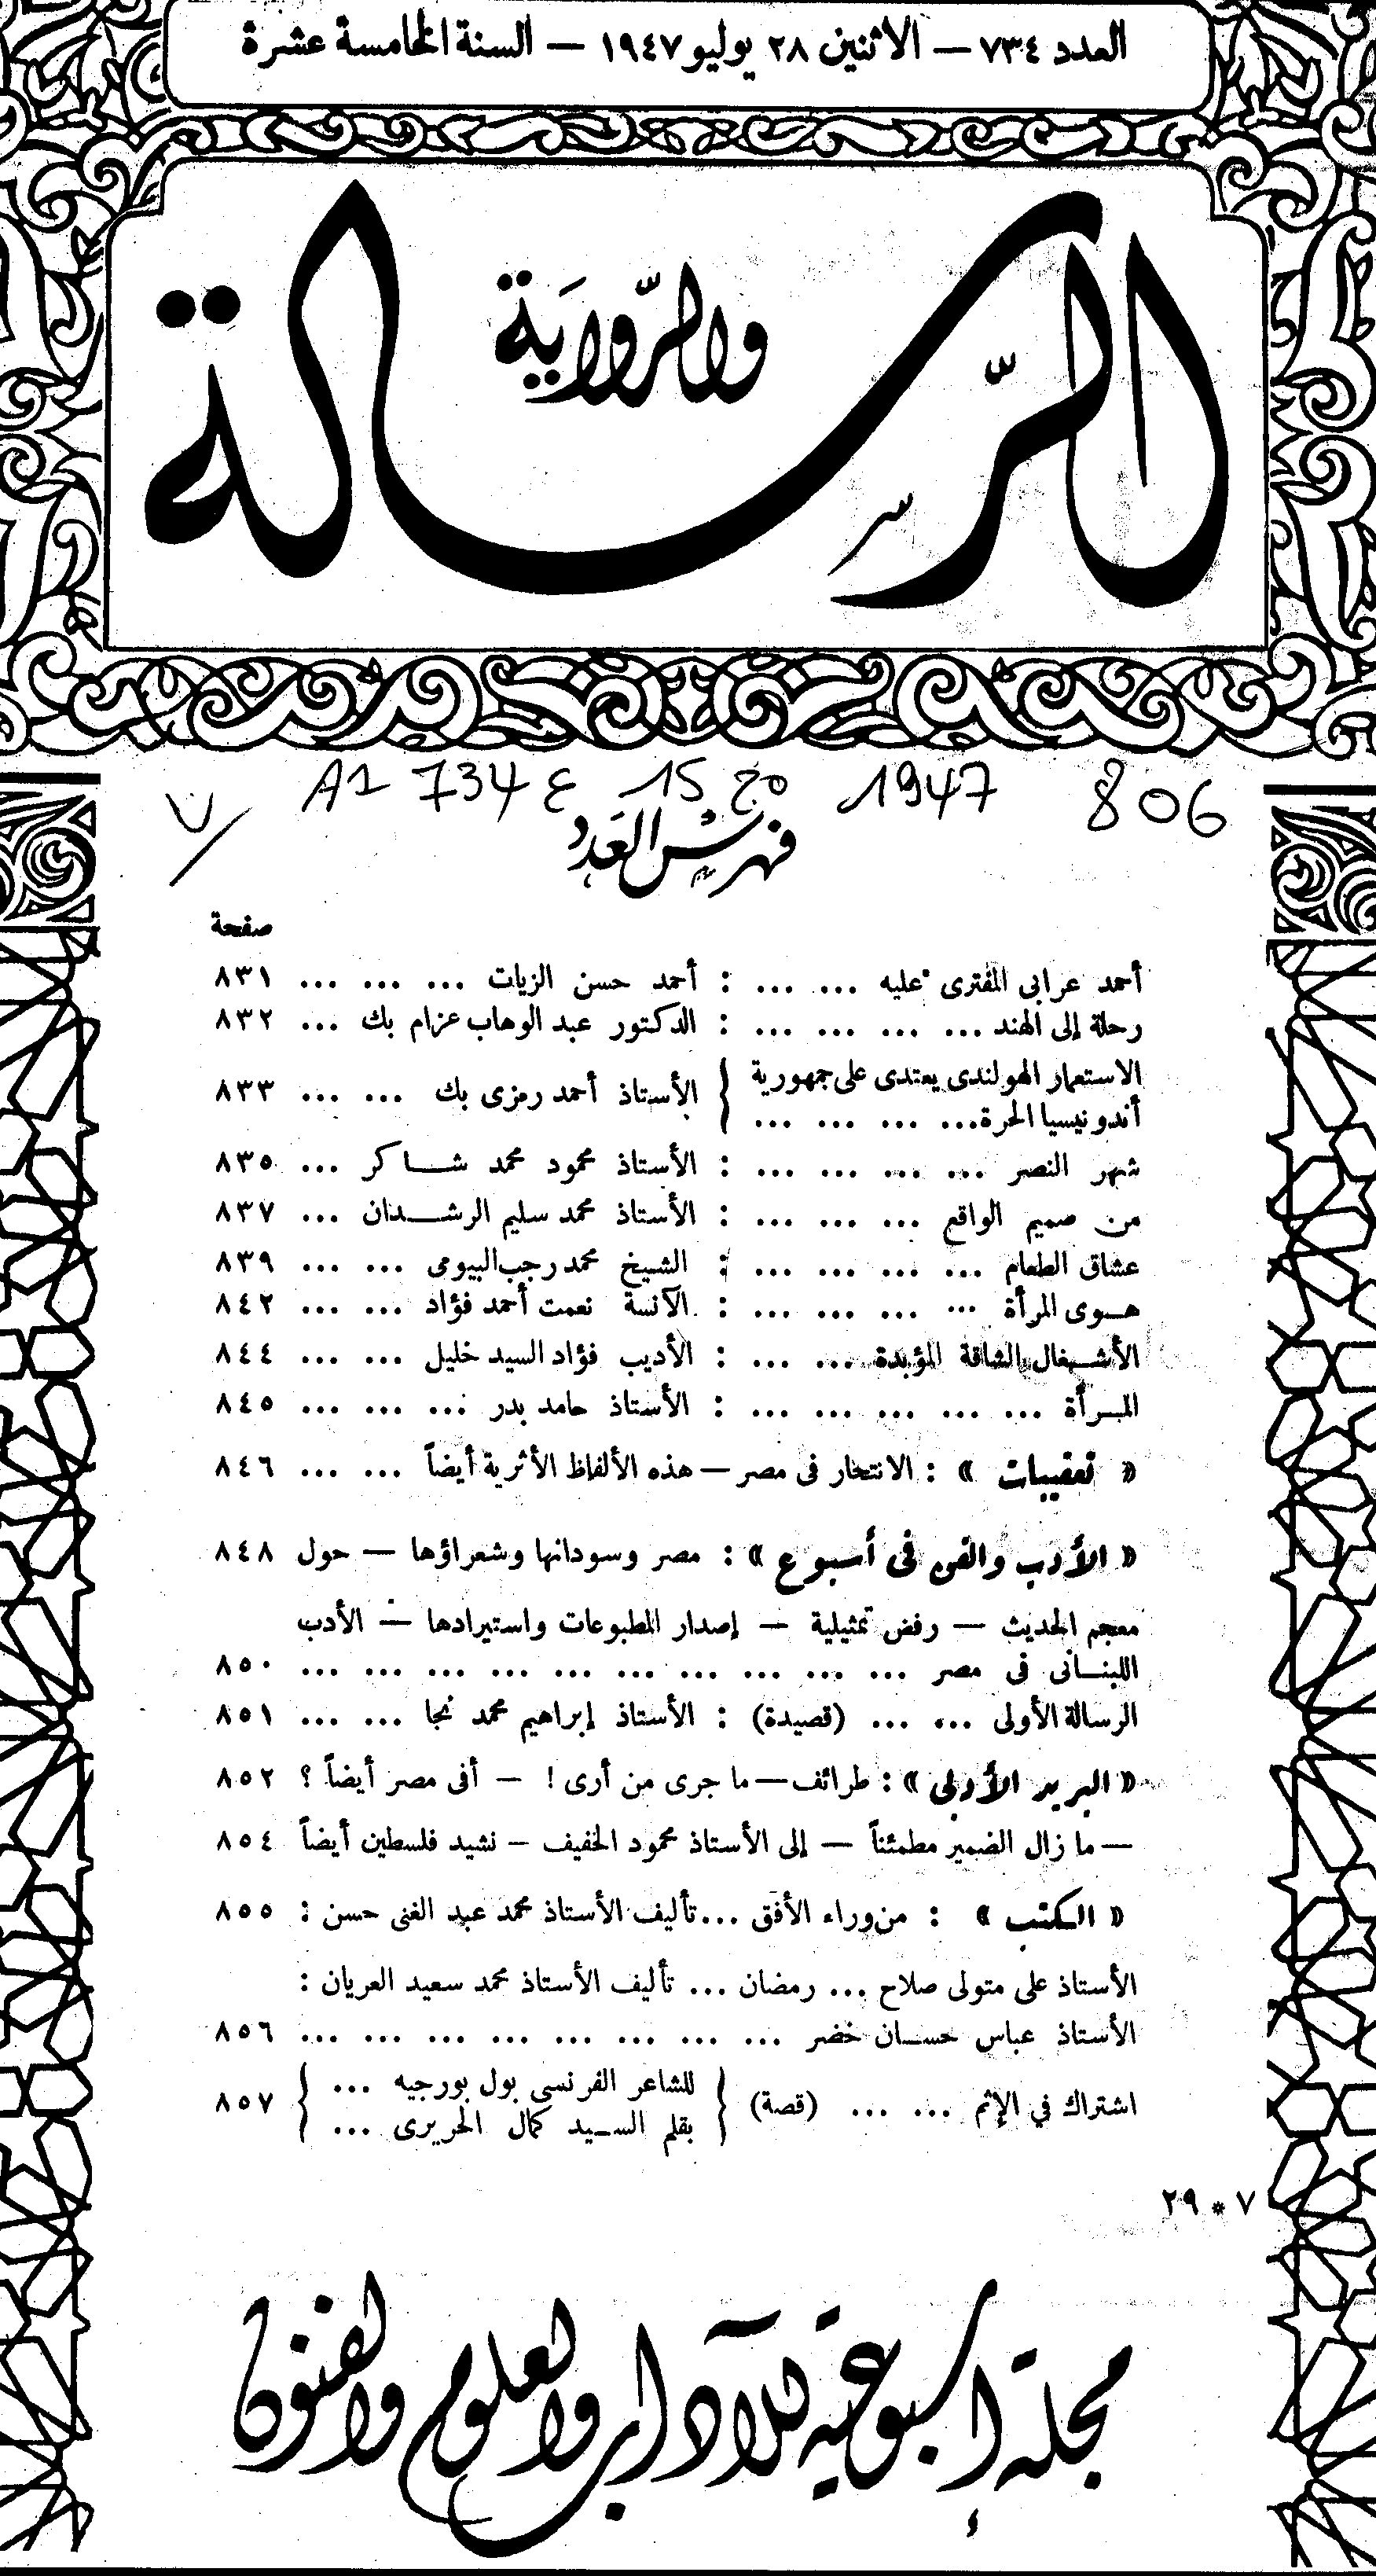 العدد ٧٣٤ — الاثنين ٢٨ يوليو ١٩٤٧ — السنة الخامسة عشرة
الرسالة
والرّواية
A1 734 ع 15 مج 1947 806
فهرس العدد
صفحة
أحمد عرابى المفترى عليه ... ... : أحمد حسن الزيات ... ... ... ٨٣١
رحلة إلى الهند ... ... ... ... : الدكتور عبد الوهاب عزام بك ... ٨٣٢
الاستعمار الهولندى يعتدى على جمهورية
أندونيسيا الحرة... ... ... ... } الأستاذ أحمد رمزى بك ... ... ٨٣٣
شهر النصر ... ... ... ... : الأستاذ محمود محمد شاكر ... ٨٣٥
من صميم الواقع ... ... ... : الأستاذ محمد سليم الرشدان ... ٨٣٧
عشاق الطعام ... ... ... ... : الشيخ محمد رجب البيومى ... ... ٨٣٩
هوى المرأة ... ... ... ... : الآنسة نعمت أحمد فؤاد ... ... ٨٤٢
الأشغال الشاقة المؤبدة ... ... : الأديب فؤاد السيد خليل ... ... ٨٤٤
المرأة ... ... ... ... ... : الأستاذ حامد بدر ... ... ... ٨٤٥
« تعقيبات » : الانتحار فى مصر — هذه الألفاظ الأثرية أيضاً ... ... ٨٤٦
« الأدب والفن فى أسبوع » : مصر وسودانها وشعراؤها — حول ٨٤٨
معجم الحديث — رفض تمثيلية — إصدار المطبوعات واستيرادها — الأدب
اللبنانى فى مصر ... ... ... ... ... ... ... ... ... ... ٨٥٠
الرسالة الأولى ... ... (قصيدة) : الأستاذ إبراهيم محمد نجا ... ... ٨٥١
« البريد الأدبى » : طرائف — ما جرى من أرى ! — أفى مصر أيضاً ؟ ٨٥٢
— ما زال الضمير مطمئناً — إلى الأستاذ محمود الخفيف — نشيد فلسطين أيضاً ٨٥٤
« الكتب » : من وراء الأفق ... تأليف الأستاذ محمد عبد الغنى حسن : ٨٥٥
الأستاذ على متولى صلاح ... رمضان ... تأليف الأستاذ محمد سعيد العريان :
الأستاذ عباس حسان خضر ... ... ... ... ... ... ... ... ٨٥٦
اشتراك في الإثم ... ... (قصة) } للشاعر الفرنسى بول بورجيه ... } ٨٥٧
بقلم السيد كمال الحريرى ...
٧ * ٢٩
مجلة أسبوعية للآداب والعلوم والفنون